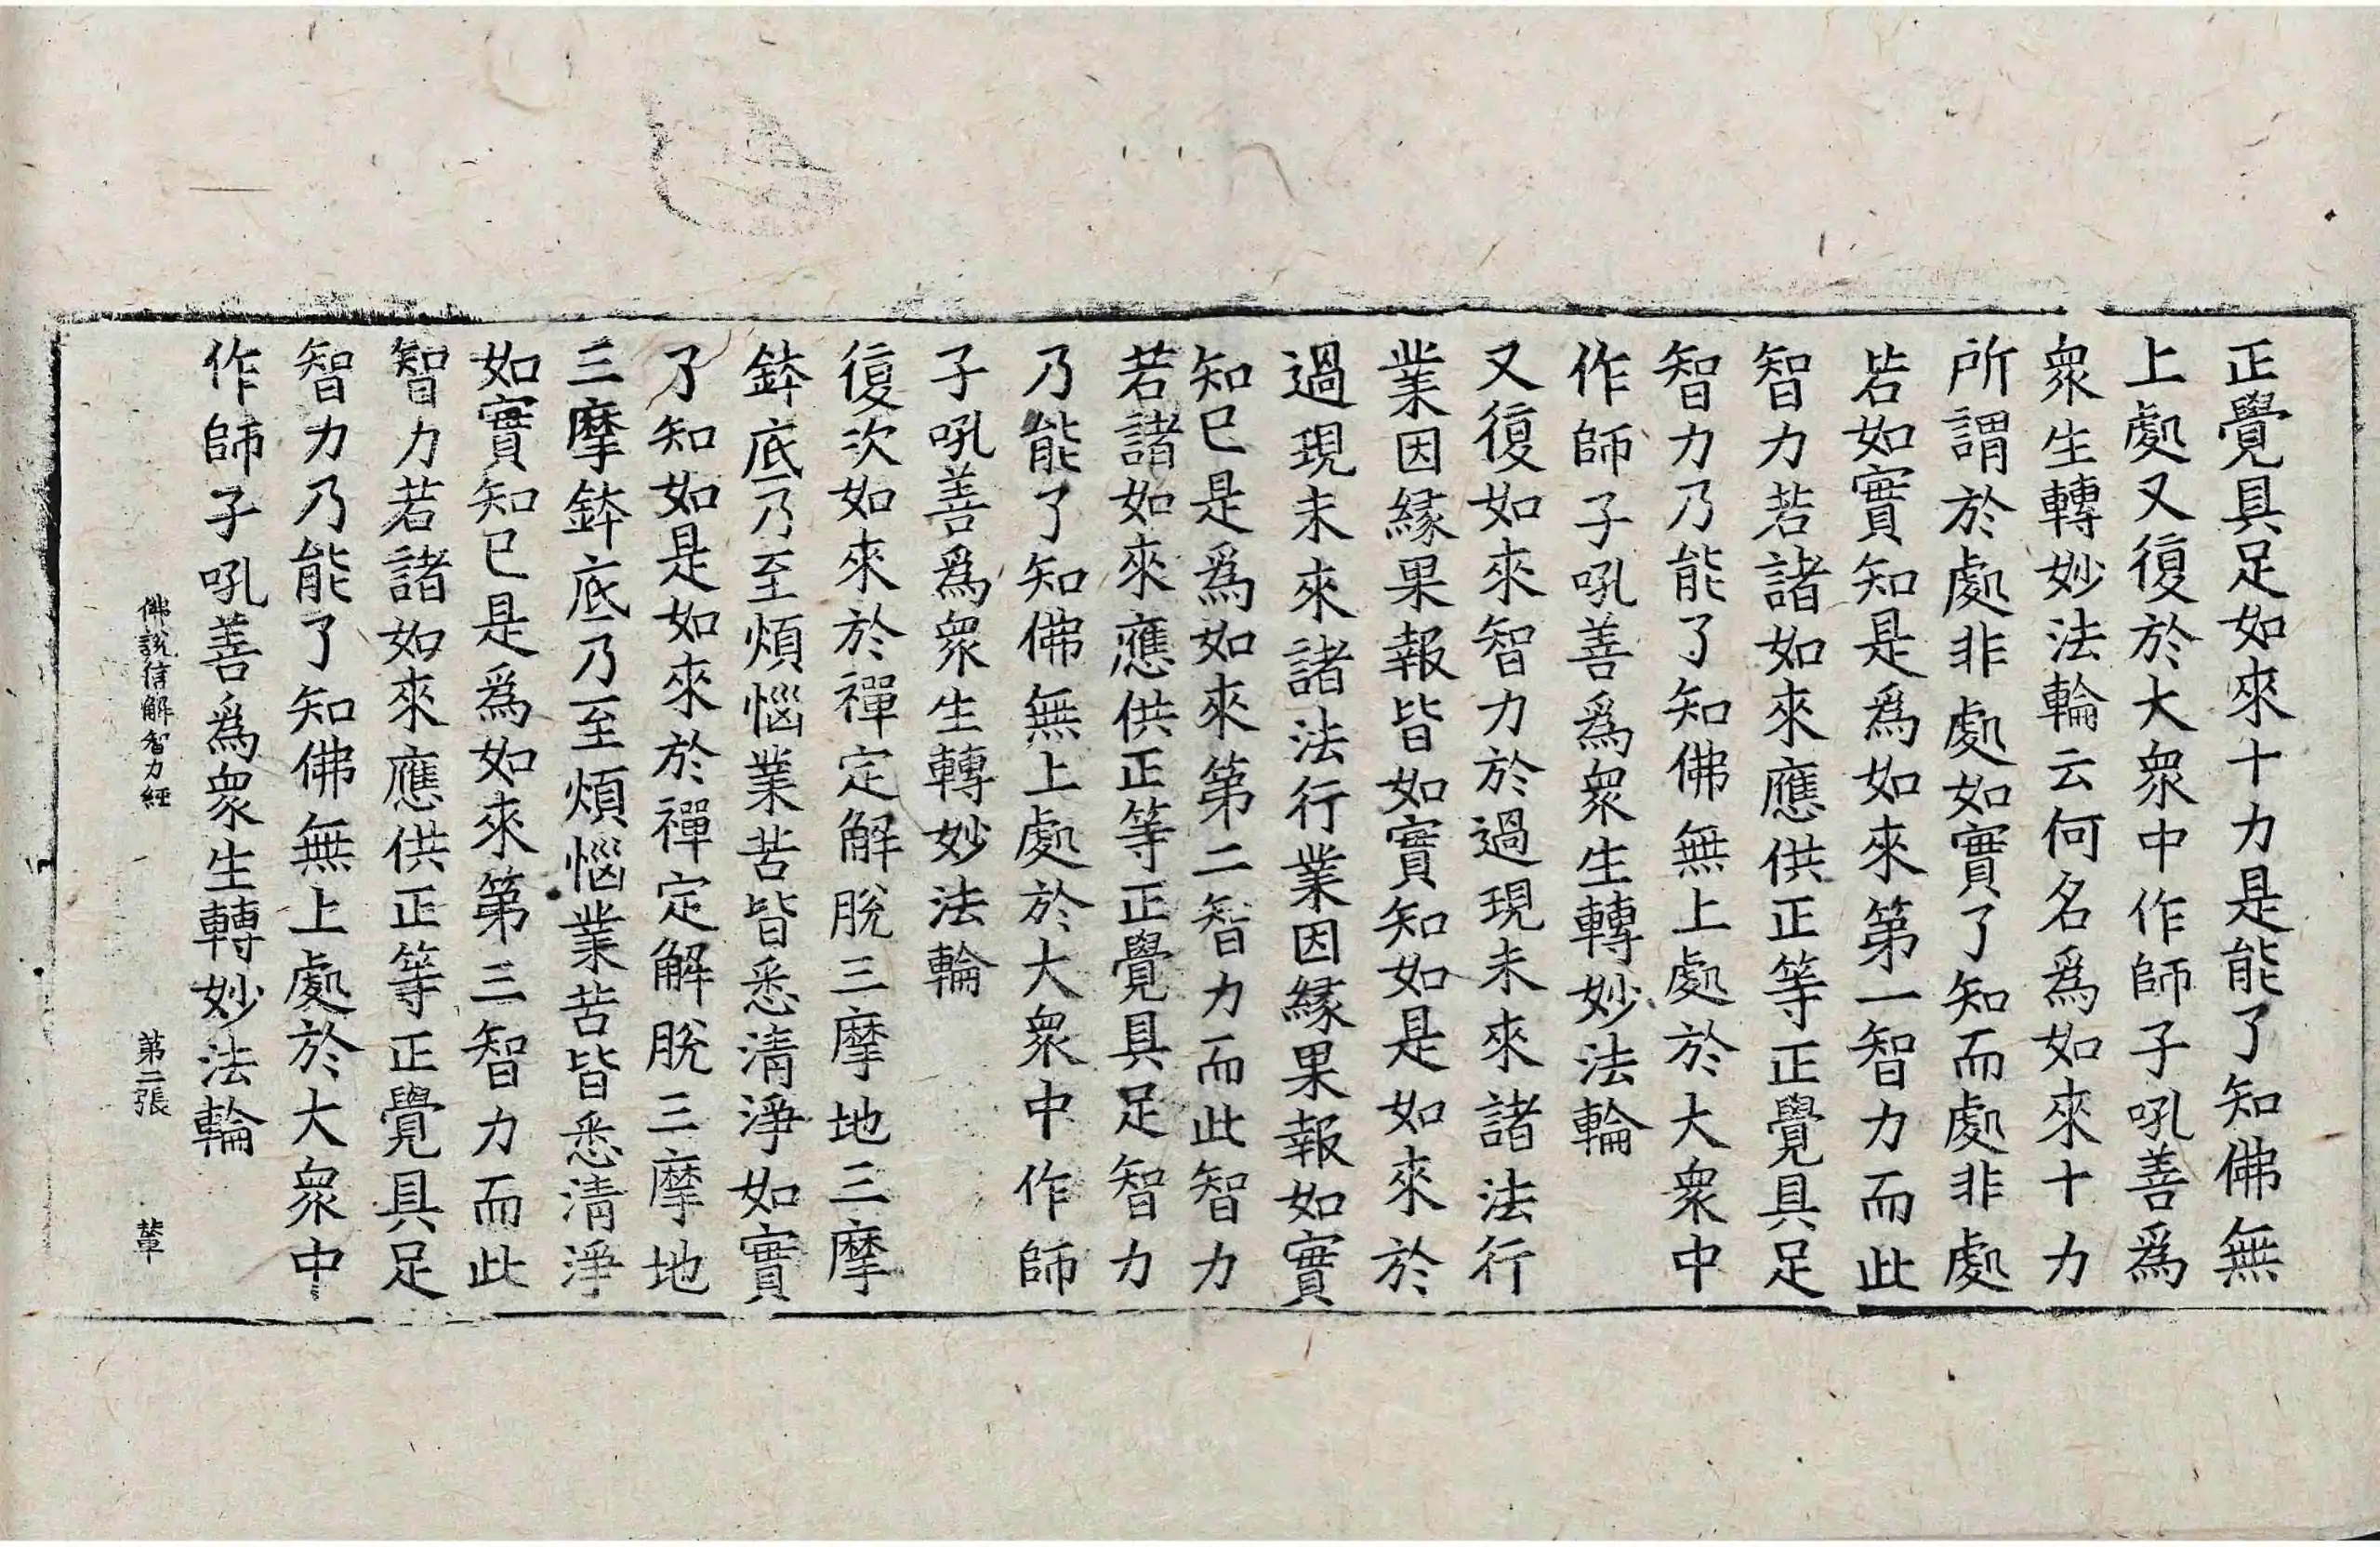 正覺具足如來十力是能了知佛無
上處又復於大衆中作師子吼善爲
衆生轉妙法輪云何名爲如來十力
所謂於處非處如實了知而處非處
皆如實知是爲如來第一智力而此
智力若諸如來應供正等正覺具足
智力乃能了知佛無上處於大衆中
作師子吼善爲衆生轉妙法輪
又復如來智力於過現未來諸法行
業因緣果報皆如實知如是如來於
過現未來諸法行業因緣果報如實
知已是爲如來第二智力而此智力
若諸如來應供正等正覺具足智力
乃能了知佛無上處於大衆中作師
子吼善爲衆生轉妙法輪
復次如來於禪定解脫三摩地三摩
鉢底乃至煩惱業苦皆悉清淨如實
了知如是如來於禪定解脫三摩地
三摩鉢底乃至煩惱業苦皆悉清淨
如實知已是爲如來第三智力而此
智力若諸如來應供正等正覺具足
智力乃能了知佛無上處於大衆中
作師子吼善爲衆生轉妙法輪
佛說信解智力經 第二張 輦